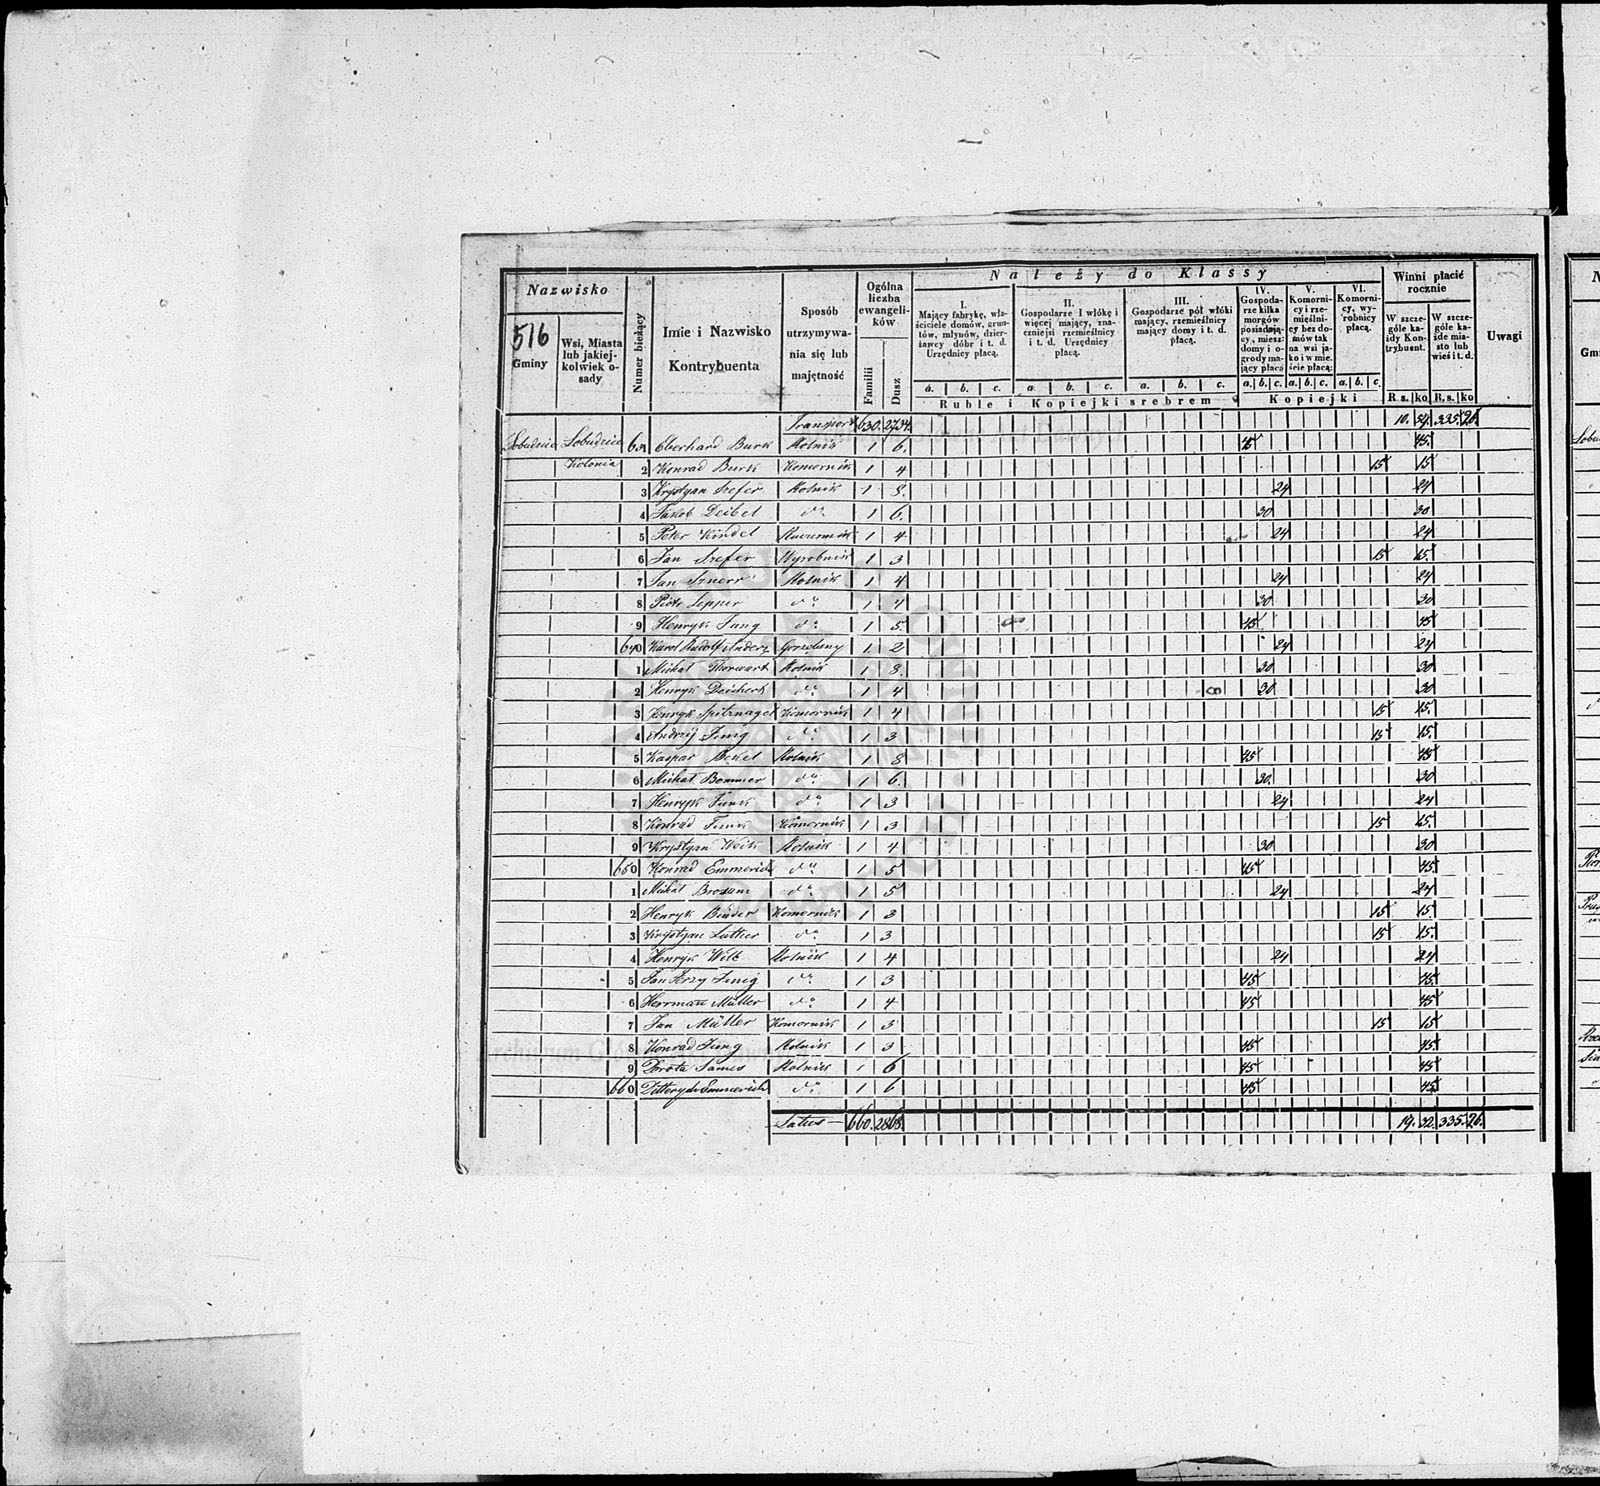 Należy do Klassy
Nazwisko
516
Gminy
Wsi, Miasta lub jakiejkolwiek osady
Numer bieżący
Imie i Nazwisko Kontrybuenta
Sposób utrzymywania się lub majętność
Ogólna liczba ewangelików
Familii
Dusz
I. Mający fabrykę, właściciele domów, gruntów, młynów, dzierżawcy dóbr i t. d. Urzędnicy płacą.
II. Gospodarze I włókę i więcej mający, znaczniejsi rzemieślnicy i t. d. Urzędnicy płacą.
III. Gospodarze pół włóki mający, rzemieślnicy mający domy i t. d. płacą.
IV. Gospodarze kilka morgów posiadający, mieszdomy i ogrody mający płacą
V. Komornicy i rzemieślnicy bez domów tak na wsi jako i w mieście płacą:
VI. Komornicy, wyrobnicy płacą.
Winni płacić rocznie
W szczególe każdy Kontrybuent.
W szczególe każde miasto lub wieś i t. d.
Uwagi
a. b. c. a. b. c. a. b. c. a. b. c. a. b. c. a. b. c.
Ruble i Kopiejki srebrem
Kopiejki
R s. ko R. s. ko
Transport 630. 2734. 10. 54. 335. 26.
Łobudzice Łobudzice 631 Eberhard Burk Rolnik 1 6. 45 45.
Kolonia 2 Konrad Burk Komornik 1 4 15 15
3 Krystyan Szefer Rolnik 1 8. 24 24
4 Jakob Deibel do 1 6. 30 30
5 Peter Kindel 1 4 24 24
6 Jan Szefer Wyrobnik 1 3 15 15.
7 Jan Sznerr Rolnik 1 4 24 24
8 Piotr Lepper do 1 4 30 30
9 Henryk Jung do 1 5 45 45
640 Karol Rudolf Anders Gorzelany 1. 2 24 24
1 Michał Thorwart Rolnik 1 8. 30 30
2 Henryk Deichert do 1 4 30 30
3 Henryk Spitznagel Komornik 1 4 15 15.
4 Andrzej Jung do 1 3 15 15.
5 Kaspar Bekel Rolnik 1 8 45 45
6 Michał Bommer do 1 6. 30. 30
7 Henryk Funk do 1 3 24 24
8 Konrad Funk Komornik 1 3 15 15.
9 Krystyan Weik Rolnik 1 4 30 30
650 Konrad Emmerich do 1 5 45 45.
1 Michał Brozam do 1 5 24 24
2 Henryk Binder Komornik 1 3 15 15.
3 Krystyan Luther do 1 3 15 15.
4 Henryk Wilt Rolnik 1 4 24 24
5 Jan Jerzy Jung do 1 3 45 45.
6 Herrman Müller do 1 4 45 45
7 Jan Müller Komornik 1 3 15 15
8 Konrad Jung Rolnik 1 3 45 45.
9 Dorota Sames Rolnik 1 6 45 45
660 Ditteryk Emmerich do 1 6 45 45
Latus 660. 2868. 19. 32. 335. 26.